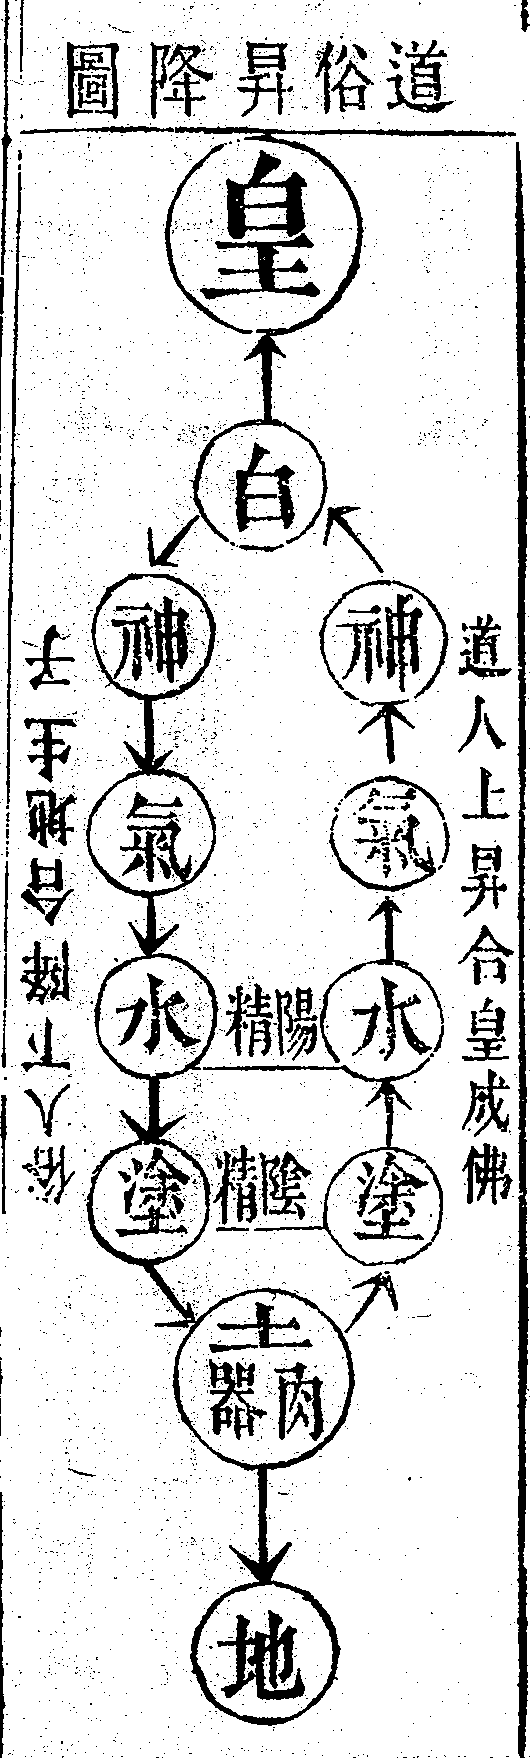 道俗昇降圖
皇
白
神
神
氣
氣
水
陽精
水
塗
陰精
塗
土
肉器
地
道人上昇合皇成佛
俗人下降合地生子